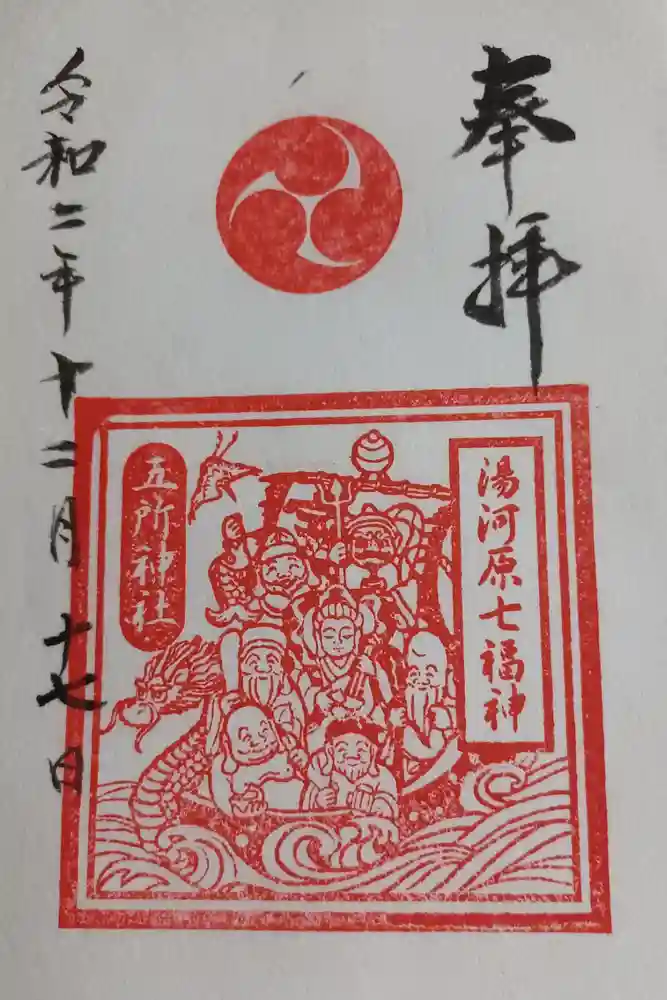 奉拝
湯河原七福神
五所神社
令和二年十二月十七日